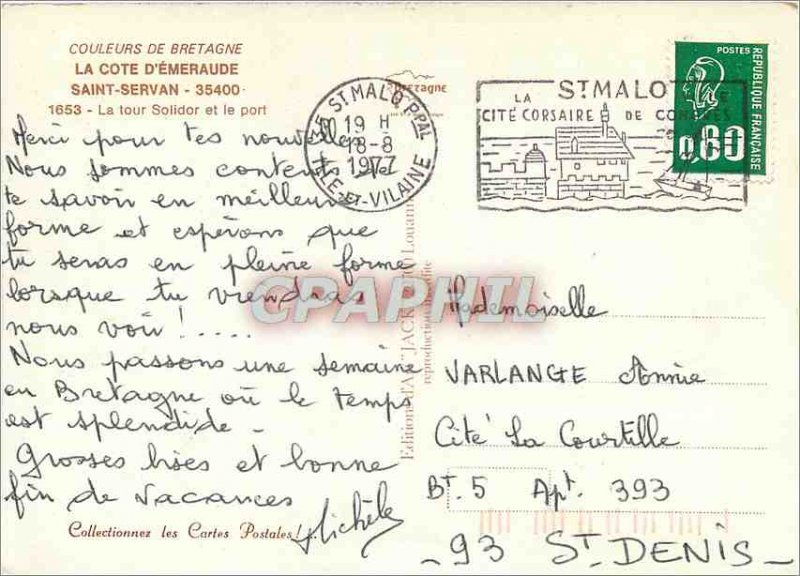 COULEURS DE BRETAGNE
LA COTE D'ÉMERAUDE
SAINT-SERVAN - 35400
1653 - La tour Solidor et le port
Merci pour tes nouvelles
Nous sommes contents de
te savoir en meilleure
forme et espérons que
tu seras en pleine forme
lorsque tu viendras
nous voir ! .....
Nous passons une semaine
en Bretagne où le temps
est splendide -
Grosses bises et bonne
fin de vacances
Michèle
Collectionnez les Cartes Postales !
Bretagne
ST MALO Ppal
19 H
18-8
1977
ILLE-ET-VILAINE
ST MALO
LA
CITÉ CORSAIRE DE CONGRÈS
POSTES
RÉPUBLIQUE FRANÇAISE
0,80
Editions d'Art "JACK" Louannec
reproduction interdite
CPAPHIL
Mademoiselle
VARLANGE Annie
Cité La Courtille
BT. 5 Apt. 393
- 93 ST. DENIS -